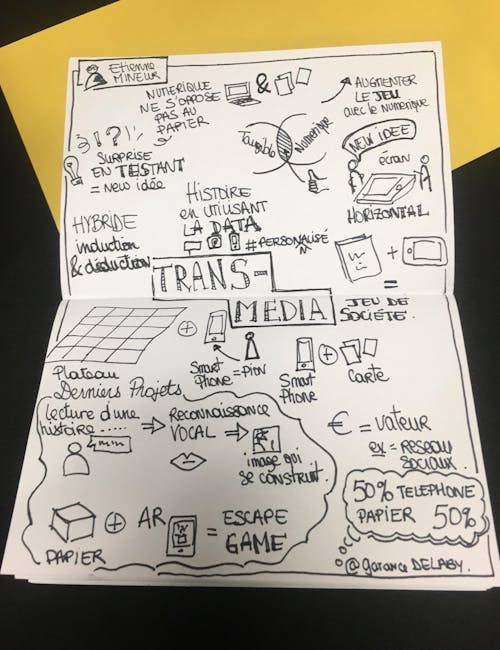 Etienne
MINEUR
NUMERIQUE
NE S'OPPOSE
PAS AU
PAPIER
&
AUGMENTER
LE JEU
avec le numérique
! ? !
SURPRISE
EN TESTANT
= New idée
Tangible
Numérique
NEW IDEE
écran
HORIZONTAL
HISTOIRE
en UTILISANT
LA DATA
#PERSONALISÉ
HYBRIDE
induction
& déduction
+
=
TRANS-
MEDIA
JEU DE
SOCIÉTÉ.
+
Plateau
Smart
Phone = Pion
+
Smart
Phone
Carte
Derniers Projets
Lecture d'une
histoire .....
⇒ RECONNAISSANCE
VOCAL ⇒
image qui
se construit.
€ = VALEUR
ex = RESEAU
SOCIAUX.
+ AR
= ESCAPE
GAME
PAPIER
50% TELEPHONE
PAPIER 50%
@garance DELABY.